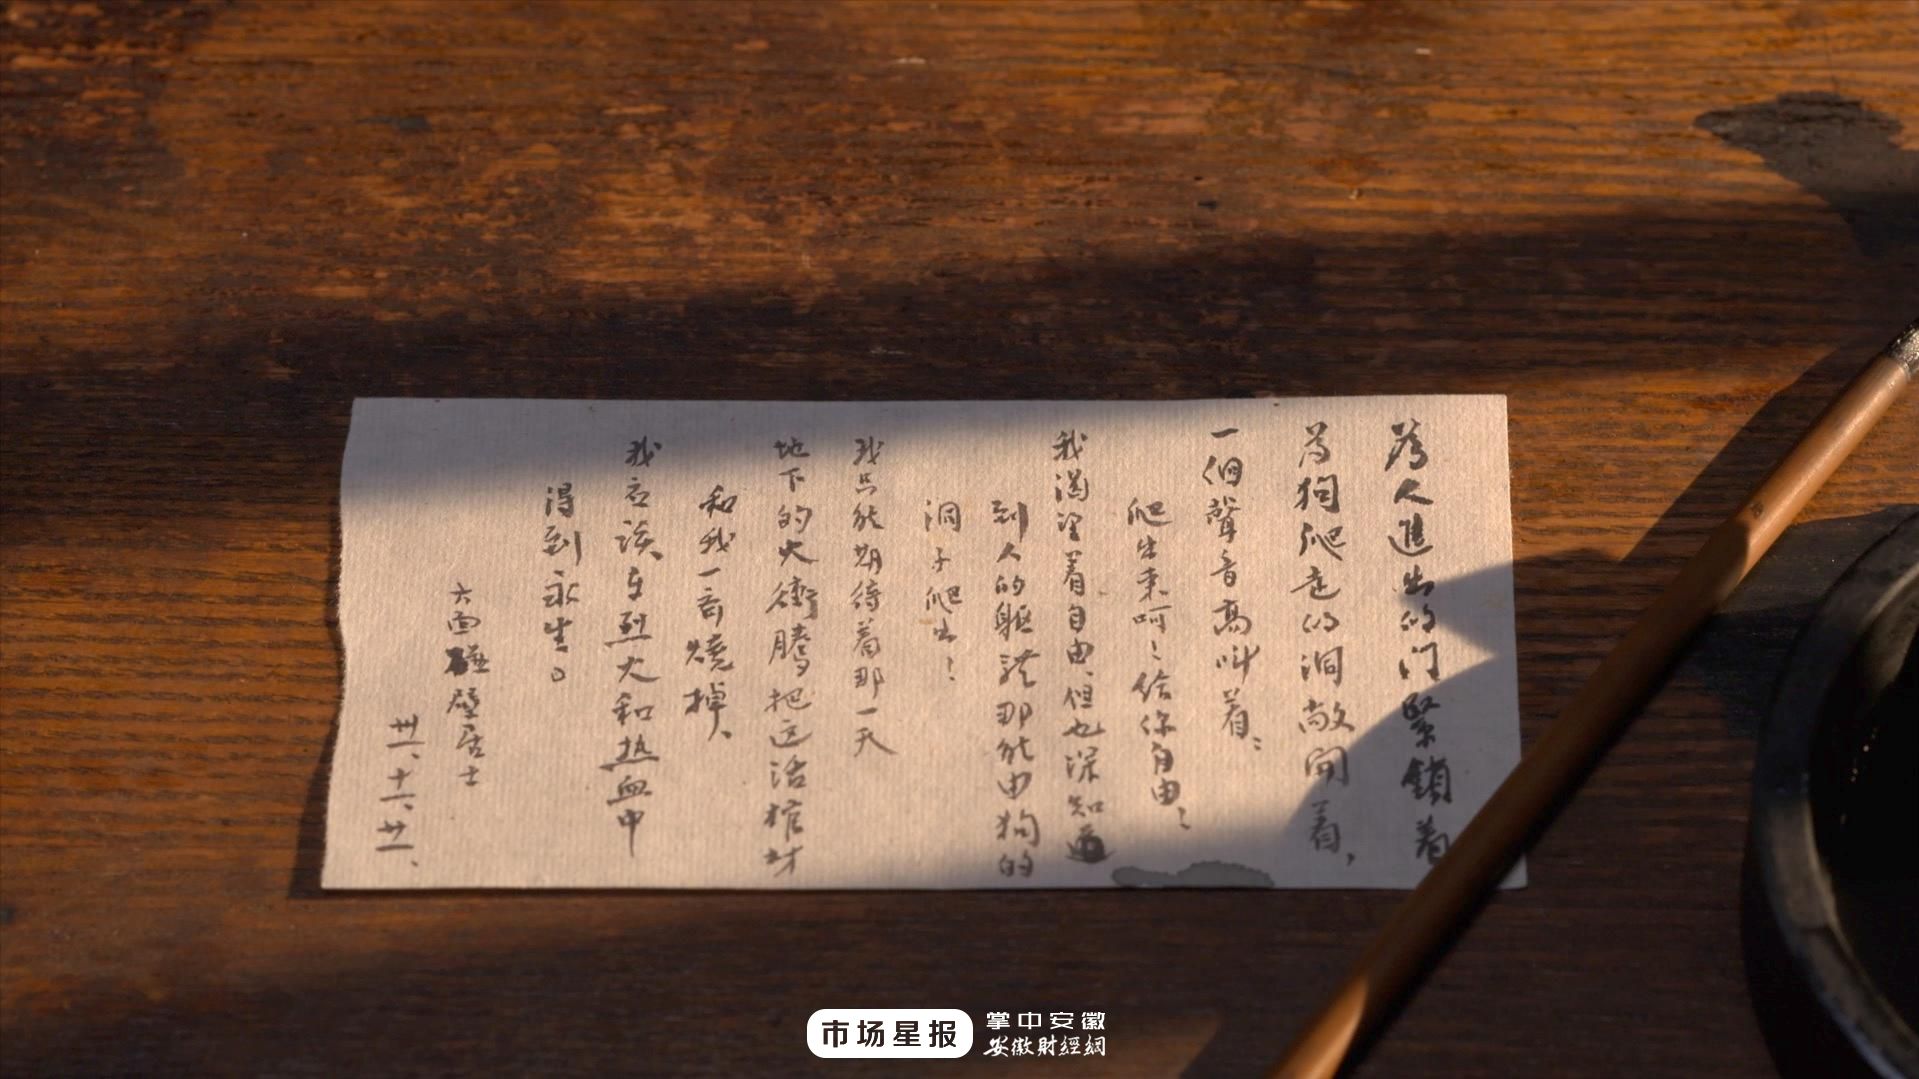 為人進出的门緊鎖着
为狗爬走的洞敞開着，
一個聲音高叫着：
爬出来呵！给你自由！
我渴望着自由、但也深知道
到人的軀體那能由狗的
洞子爬出！
我只能期待着那一天
地下的火衝騰把这活棺材
和我一齊燒掉、
我应该在烈火和热血中
得到永生。
六面碰壁居士
卅一、十一、廿一、
市场星报
掌中安徽
安徽财經網